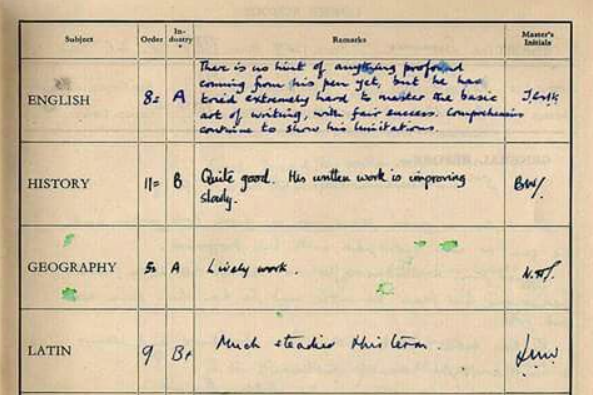 Subject Order In- dustry Remarks Master's Initials
ENGLISH 8= A There is no hint of anything profound
coming from his pen yet, but he has
tried extremely hard to master the basic
art of writing, with fair success. Comprehensions
continue to show his limitations.
HISTORY 11= B Quite good. His written work is improving
slowly. BW/.
GEOGRAPHY 5= A Lively work.
LATIN 9 B+ Much steadier this term.